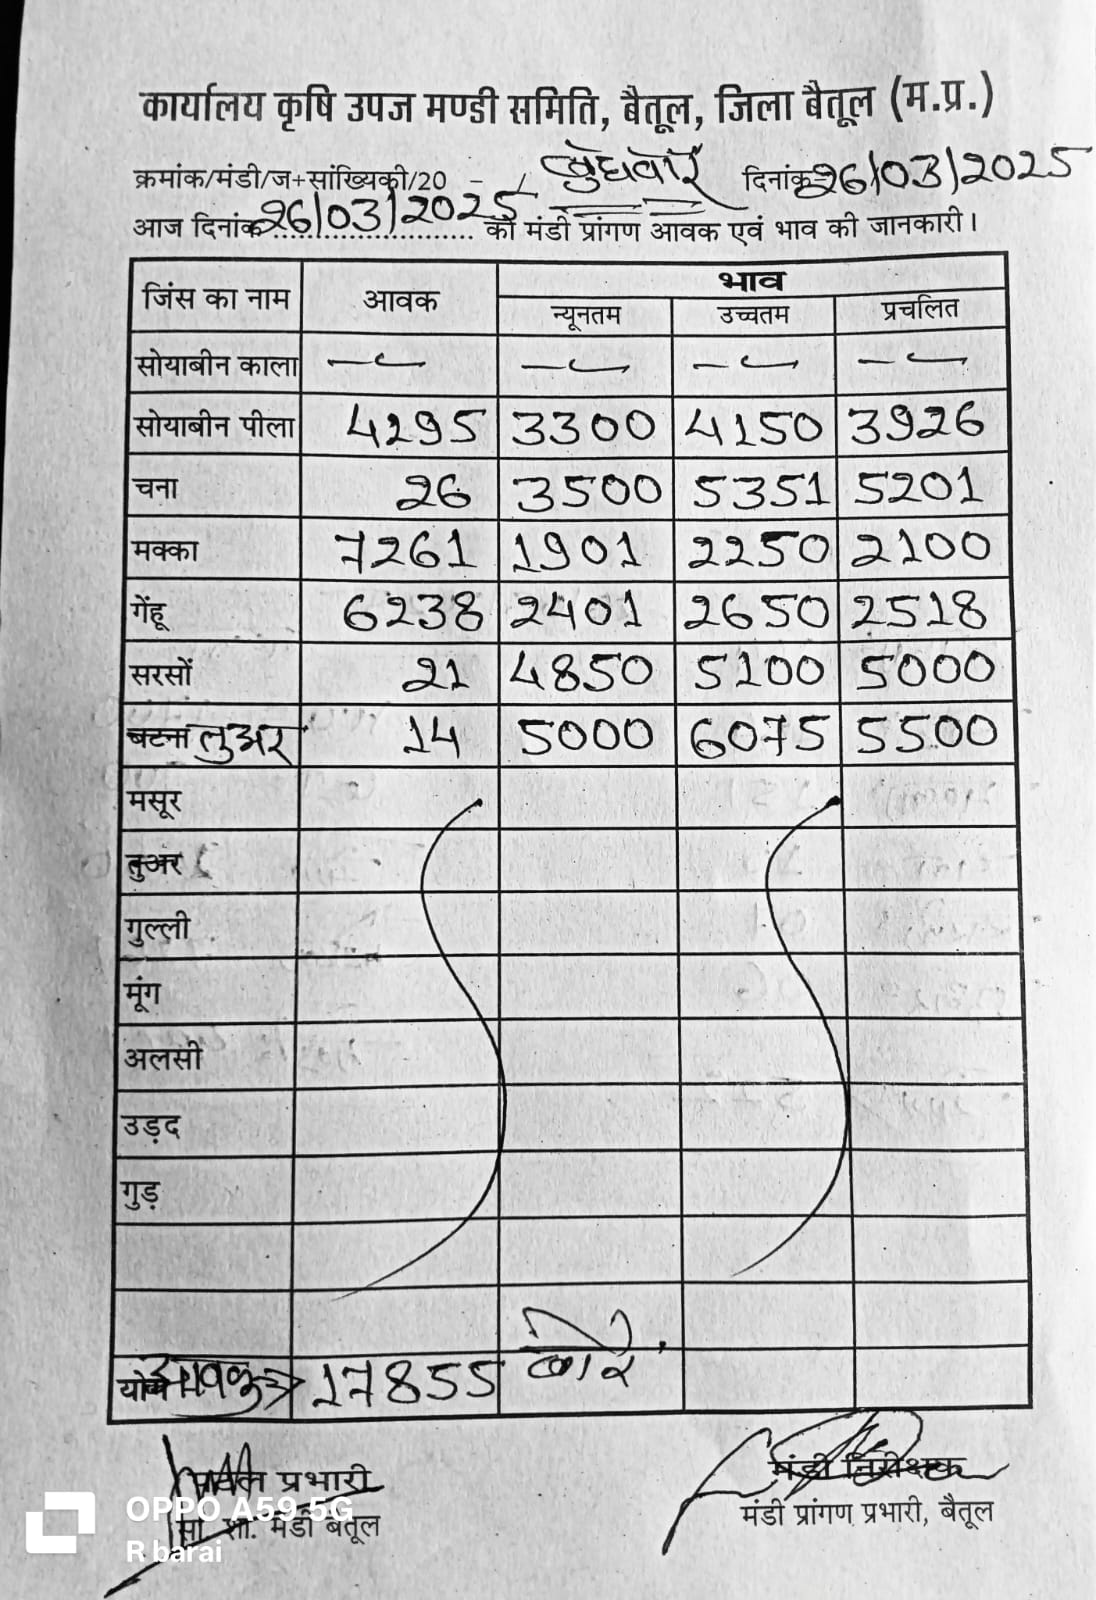 कार्यालय कृषि उपज मण्डी समिति, बैतूल, जिला बैतूल (म.प्र.)
क्रमांक/मंडी/ज+सांख्यिकी/20 - / बुधवार दिनांक 26/03/2025
आज दिनांक 26/03/2025 की मंडी प्रांगण आवक एवं भाव की जानकारी।
जिंस का नाम आवक भाव
न्यूनतम उच्चतम प्रचलित
सोयाबीन काला - - - -
सोयाबीन पीला 4295 3300 4150 3926
चना 26 3500 5351 5201
मक्का 7261 1901 2250 2100
गेंहू 6238 2401 2650 2518
सरसों 21 4850 5100 5000
बटना तुअर 14 5000 6075 5500
मसूर
तुअर
गुल्ली
मूंग
अलसी
उड़द
गुड़
आवक 17855 बोरे
प्रभारी मंडी निरीक्षक
मंडी बैतूल मंडी प्रांगण प्रभारी, बैतूल
OPPO A59 5G
R barai